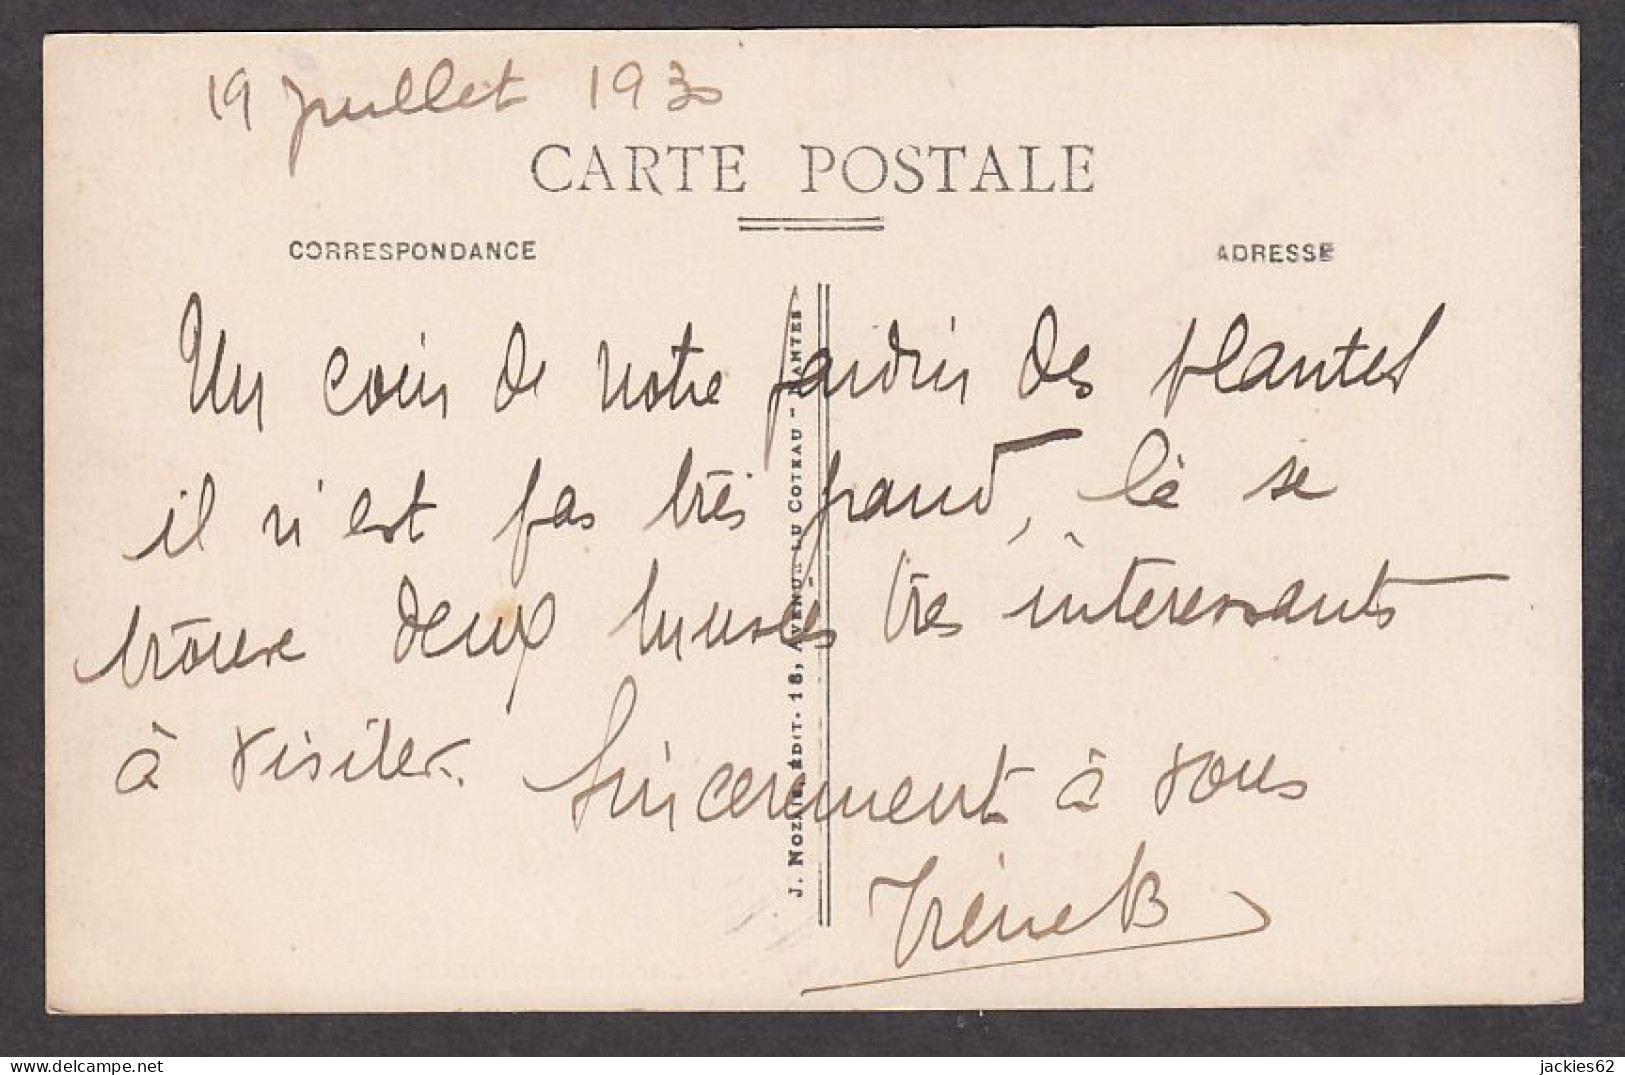 19 juillet 1930
CARTE POSTALE
CORRESPONDANCE
ADRESSE
Un coin de notre jardin des plantes
il n'est pas très grand, là se
trouve deux musées très intéressants
à visiter. Sincèrement à vous
Irène B
J. NOZAIS, ÉDIT. 18, AVENUE DU COTEAU - NANTES
jackies62